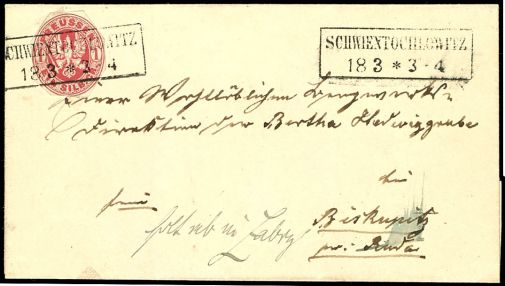 PREUSSEN
SILB
SCHWIENTOCHLOWITZ
18 3 * 3 - 4
SCHWIENTOCHLOWITZ
18 3 * 3 - 4
einer Wohllöblichen Bergwerks-
Direktion der Bertha Hedwiggrube
bei
Biskupitz
frei
holt ab in Zabrze
pr. Ruda